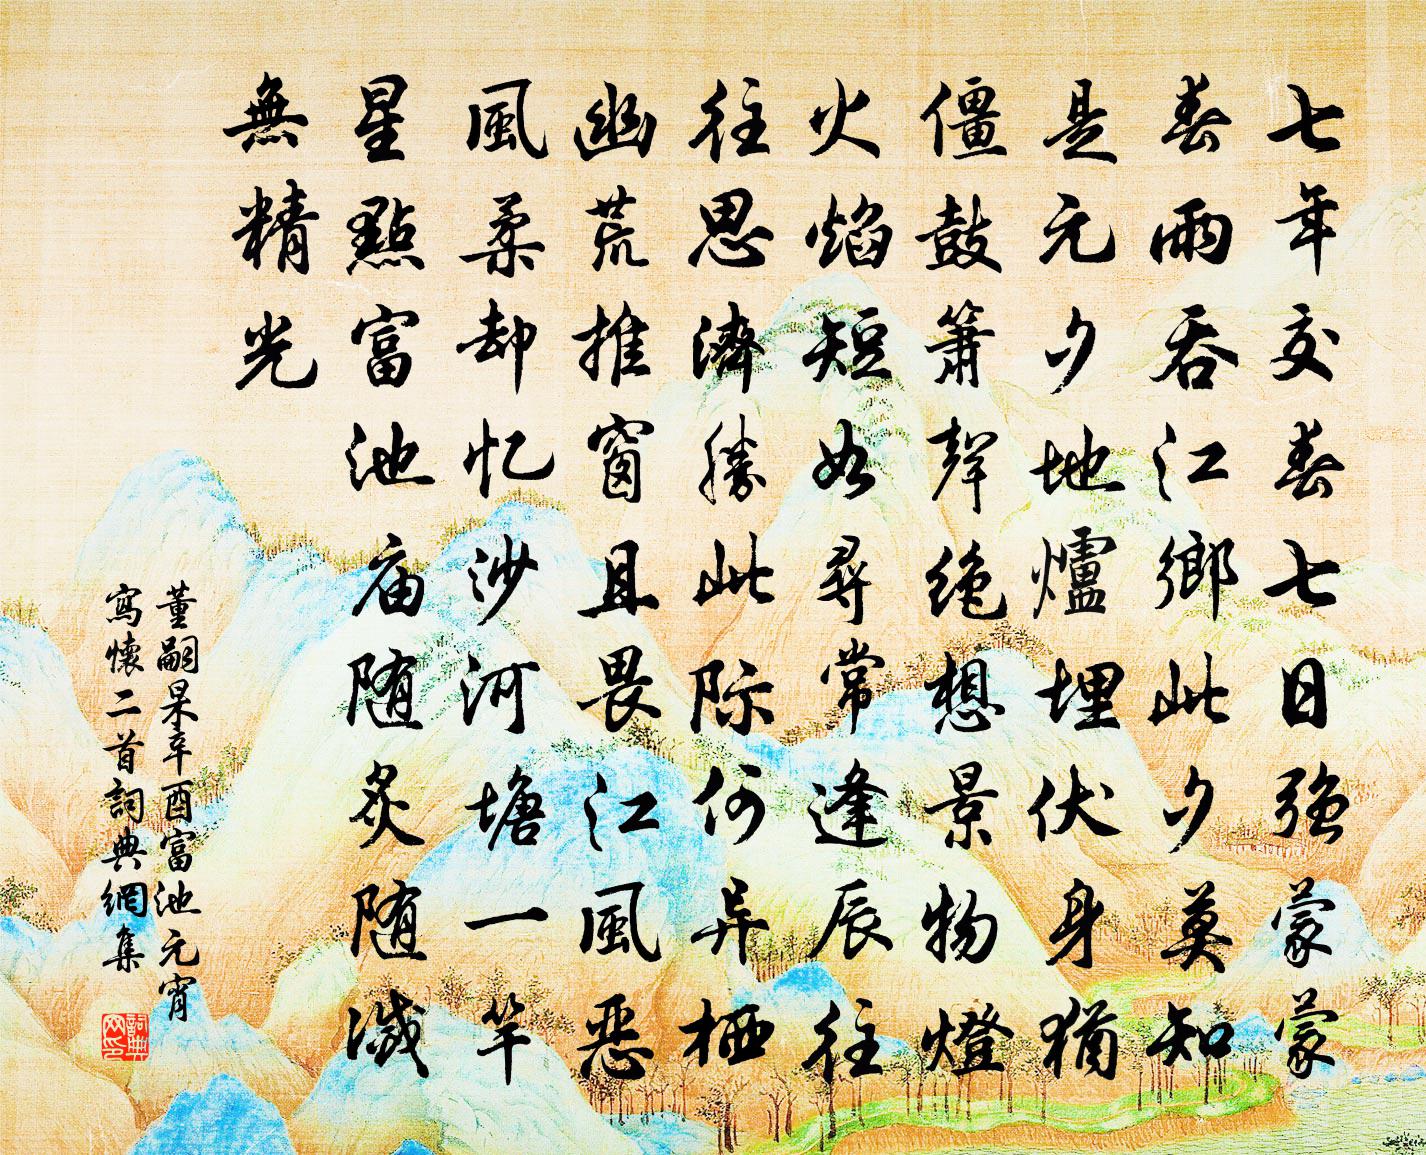 七年交春七日強蒙蒙
春雨吞江鄉此夕莫知
是元夕地爐埋伏身猶
僵鼓簫聲絕想景物燈
火焰短如尋常逢辰往
往思濟勝此际何异栖
幽荒推窗且畏江風惡
風柔却忆沙河塘一竿
星點富池庙随炙随滅
無精光
董嗣杲辛酉富池元宵
寫懷二首詞典網集
詞典網印